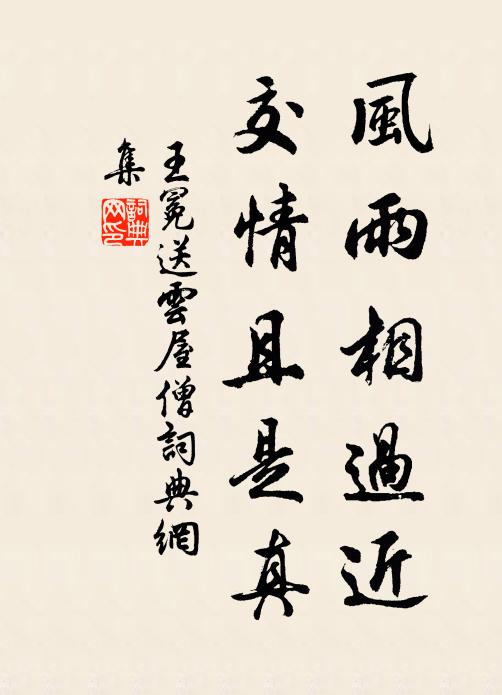 風雨相過近
交情且是真
王冕送雲屋僧詞典網
集
詞典
网印